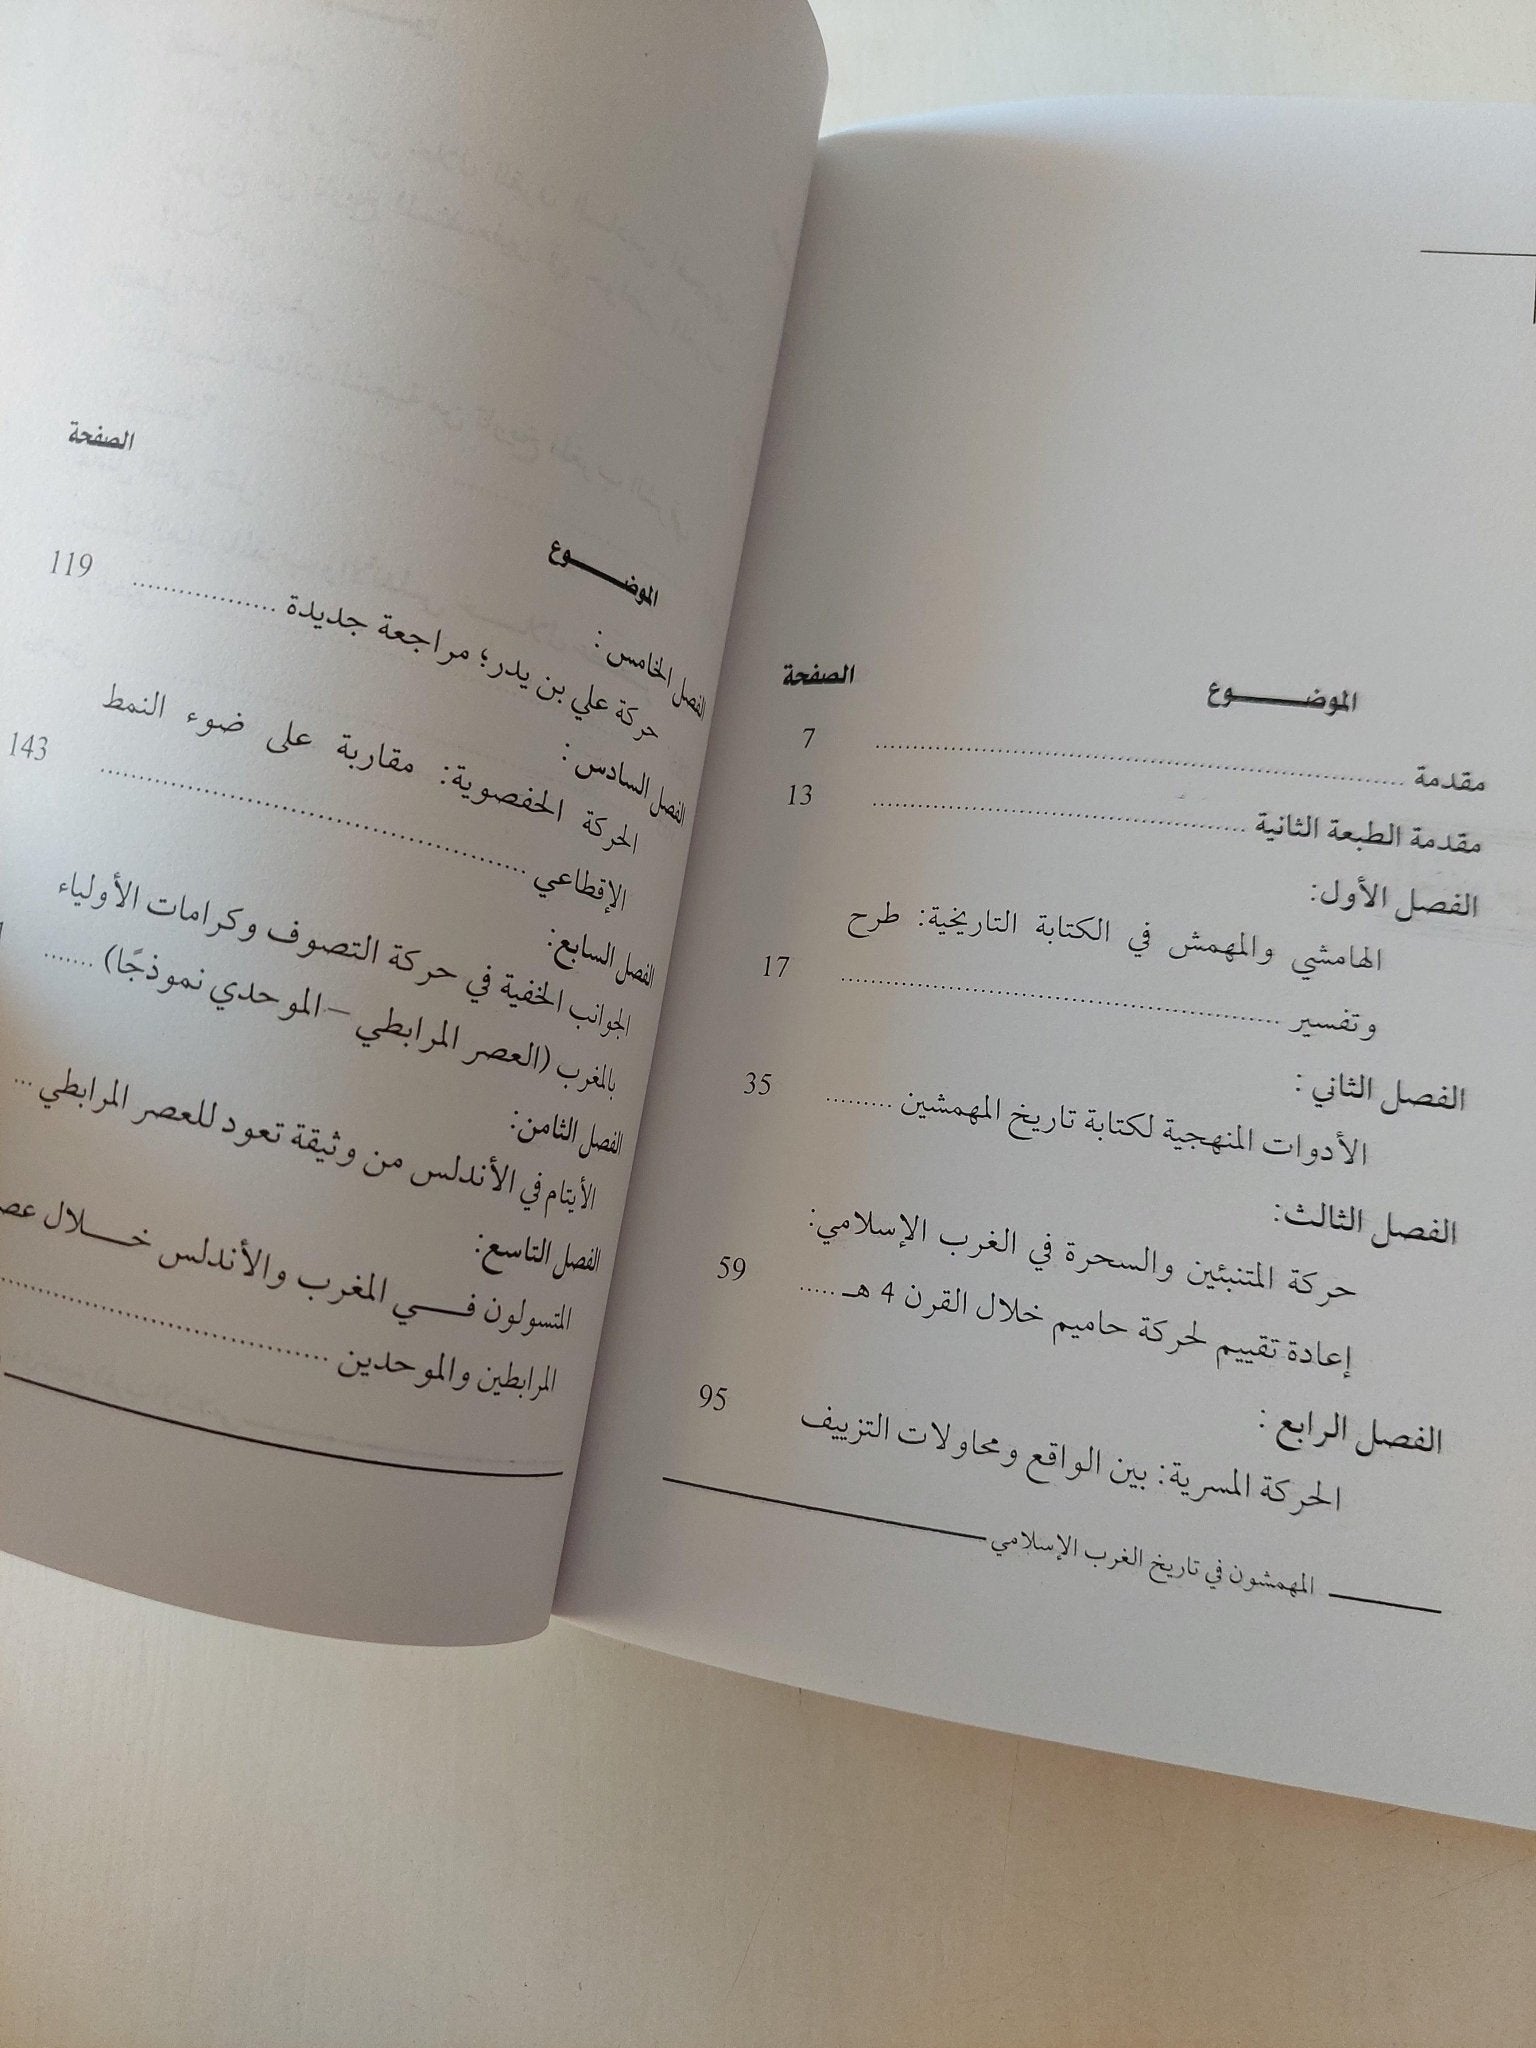 الموضـــــوع الصفحة
مقدمة ........................................ 7
مقدمة الطبعة الثانية ........................................ 13
الفصل الأول:
الهامشي والمهمش في الكتابة التاريخية: طرح
وتفسير ........................................ 17
الفصل الثاني :
الأدوات المنهجية لكتابة تاريخ المهمشين ......... 35
الفصل الثالث:
حركة المتنبئين والسحرة في الغرب الإسلامي:
إعادة تقييم لحركة حاميم خلال القرن 4 هـ ..... 59
الفصل الرابع :
الحركة المسرية: بين الواقع ومحاولات التزييف 95
المهمشون في تاريخ الغرب الإسلامي
الموضـــــوع الصفحة
الفصل الخامس :
حركة علي بن يدر؛ مراجعة جديدة ................. 119
الفصل السادس :
الحركة الحفصوية: مقاربة على ضوء النمط
الإقطاعي ........................................ 143
الفصل السابع:
الجوانب الخفية في حركة التصوف وكرامات الأولياء
بالمغرب (العصر المرابطي – الموحدي نموذجًا) .......
الفصل الثامن:
الأيتام في الأندلس من وثيقة تعود للعصر المرابطي ...
الفصل التاسع:
المتسولون فـــي المغرب والأندلس خـــلال
المرابطين والموحدين ........................................